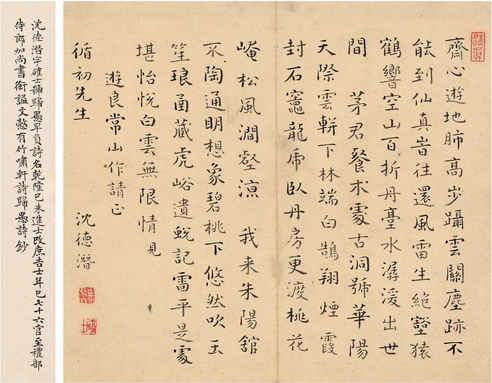 齋心遊地肺高步躡雲關塵跡不
能到仙真昔往還風雷生絕壑猿
鶴響空山百折丹臺水潺湲出世
間 茅君餐朮處古洞號華陽
天際雲軿下林端白鵠翔煙霞
封石竈龍虎臥丹房更渡桃花
崦松風澗壑涼 我来朱陽舘
不陶通明想象碧桃下悠然吹玉
笙琅函藏虎峪遺蛻記雷平是處
堪怡悅白雲無限情 見
遊良常山作請正
循初先生
沈德潛
沈德潛字確士號歸愚早負詩名乾隆己未進士改庶吉士年已七十六官至禮部
侍郎加尚書銜謚文慤有竹嘯軒詩歸愚詩鈔